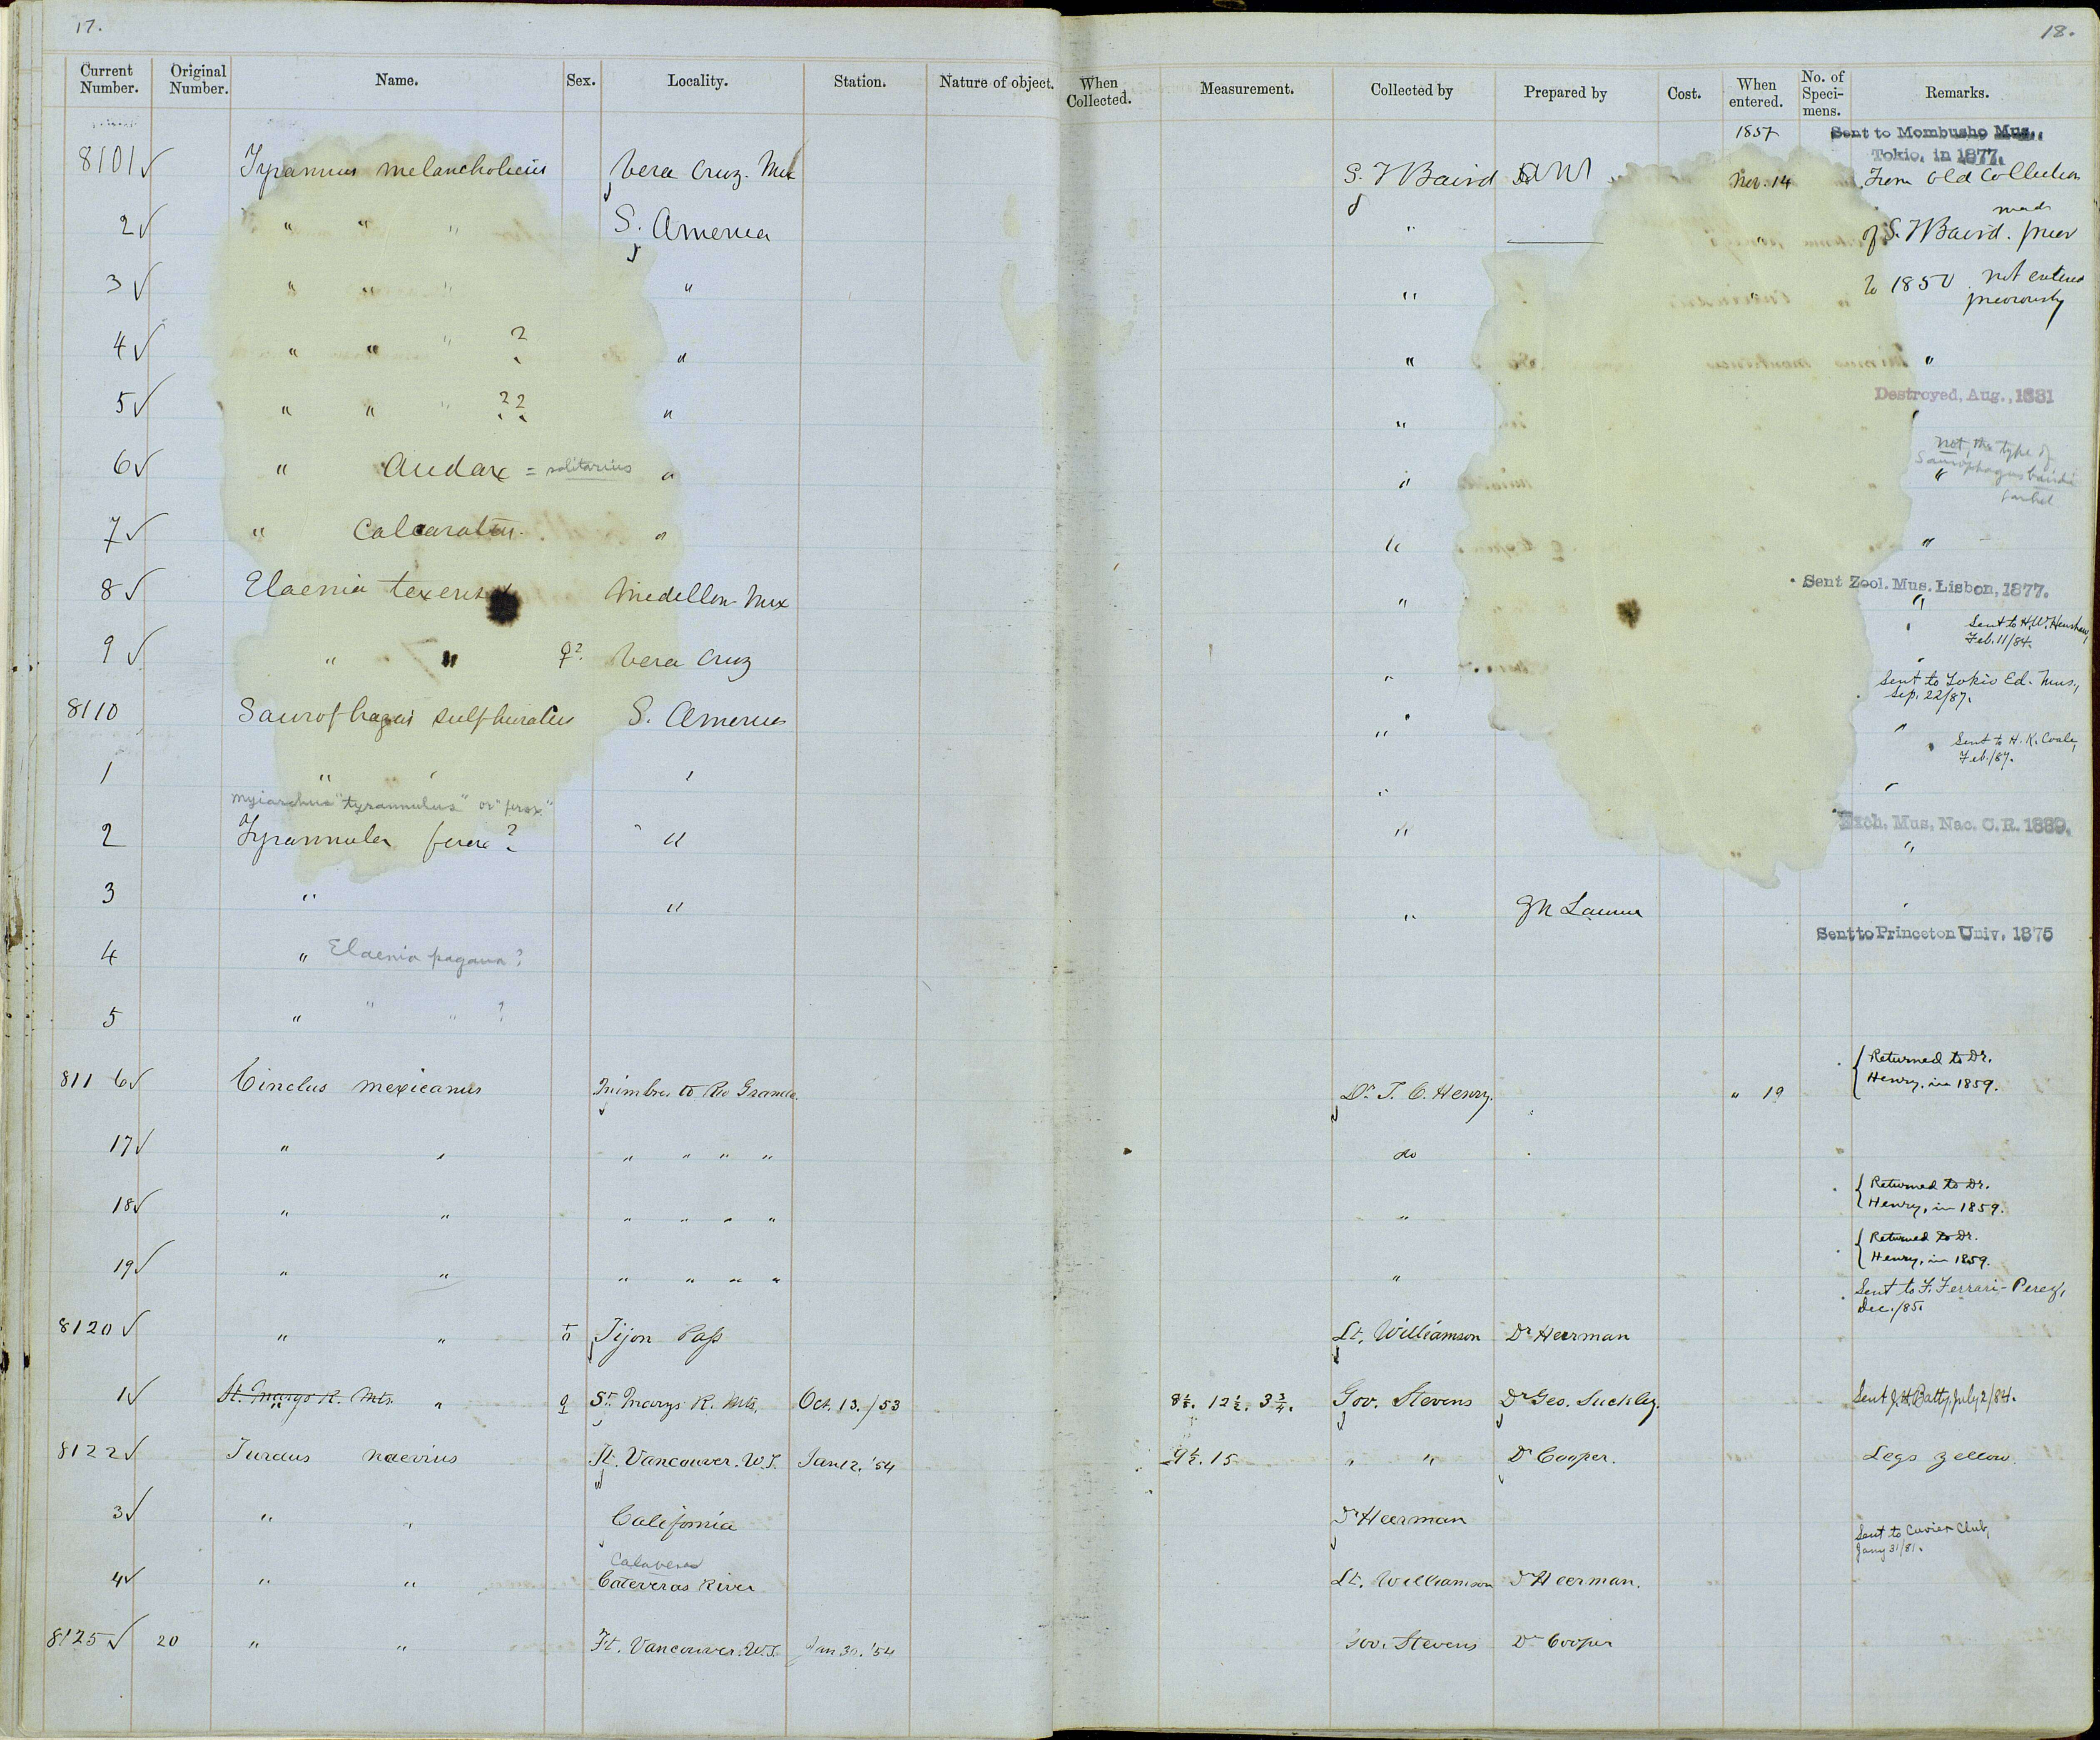 17.
18.
Current Number. Original Number. Name. Sex. Locality. Station. Nature of object. When Collected. Measurement. Collected by Prepared by Cost. When entered. No. of Speci-mens. Remarks.
1857 Sent to Mombusho Mus., Tokio, in 1877.
8101 Tyrannus melancholicus Vera Cruz. Mex S. F Baird Nov. 14 From Old Collection
2 " " " S. America " " made of S. F Baird. prior
3 " " " " " " to 1850. not entered previously
4 " " " ? " " "
Destroyed, Aug., 1881
5 " " " ?? " "
not, the type of Saurophagus bairdi
6 " Audax = solitarius " " "
7 " Calcaratus. " " "
Sent Zool. Mus. Lisbon, 1877.
8 Elaenia texensis Medellon Mex " "
Sent to H. W. Henshaw, Feb. 11/84.
9 " " ♀? Vera Cruz " "
Sent to Tokio Ed. Mus., Sep. 22/87.
8110 Saurophagus sulphuratus S. America " "
Sent to H. K. Coale, Feb./87.
1 " " " " "
Myiarchus "tyrannulus" or "ferox"
Exch. Mus. Nac. C. R. 1889.
2 Tyrannula ferox? " " "
3 " " " "
Sent to Princeton Univ. 1875
4 " Elaenia pagana?
5 " " " ?
8116 Cinclus mexicanus Mimbres to Rio Grande. Dr. T. C. Henry. " 19 Returned to Dr. Henry, in 1859.
17 " " " " " " do
18 " " " " " " " Returned to Dr. Henry, in 1859.
19 " " " " " " " Returned to Dr. Henry, in 1859.
Sent to F. Ferrari-Perez, Dec./85.
8120 " " Tijon Pass Lt. Williamson Dr Heerman
1 St. Marys R. Mts. " " ♀ St. Marys R. Mts. Oct. 13./53 8½. 12½. 3¾. Gov. Stevens Dr Geo. Suckley. Sent J. H. Batty, July 2/84.
8122 Turdus naevius Ft. Vancouver. W.T. Jan 12. '54 9½. 15 " " Dr Cooper. Legs yellow.
3 " " California Dr Heerman
Sent to Cuvier Club, Jany 31/81.
Calaveras
4 " " Cateveras River Lt. Williamson Dr Heerman.
8125 20 " " Ft. Vancouver. W.T. Jan 30. '54 Gov. Stevens Dr Cooper